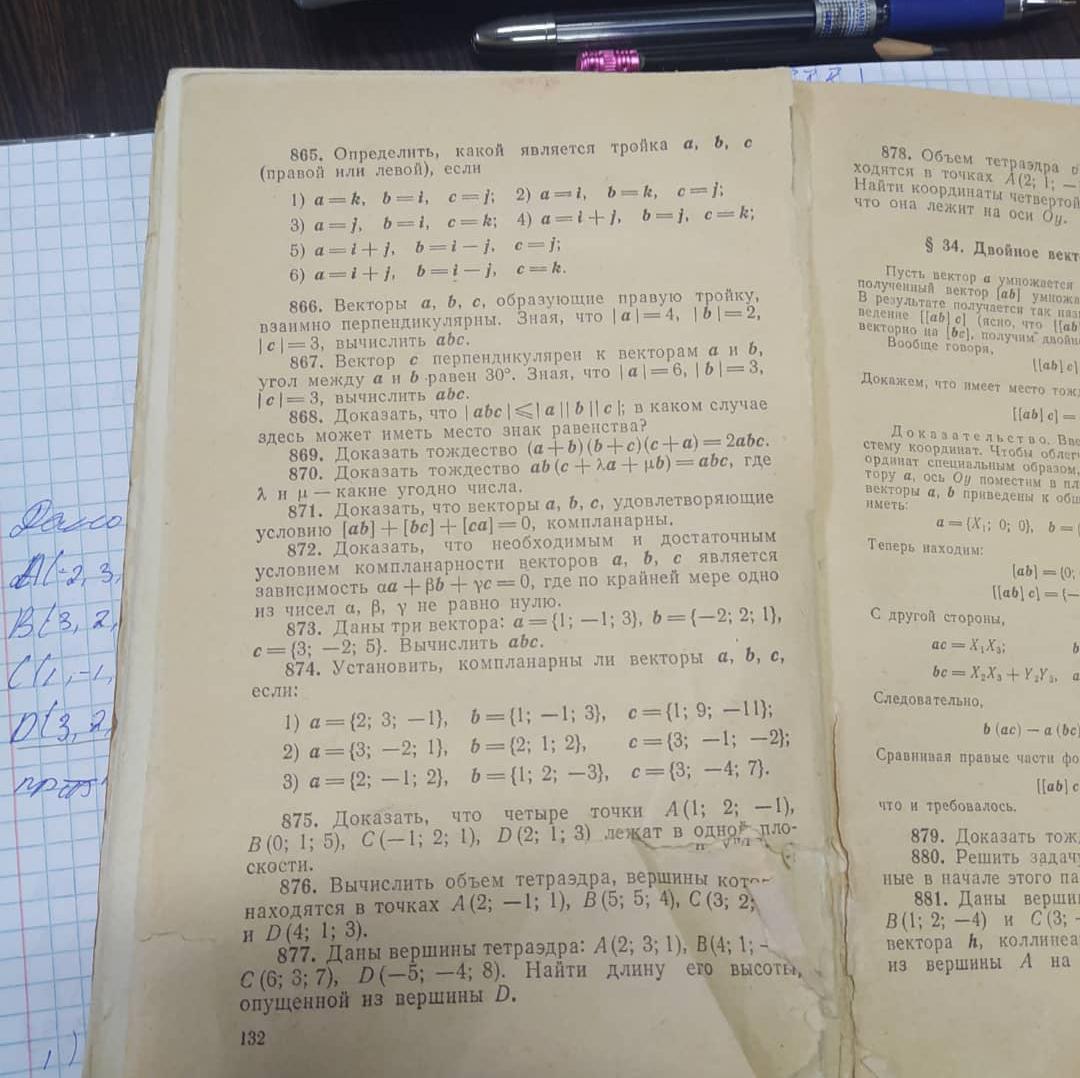 865. Определить, какой является тройка a, b, c
(правой или левой), если
1) a=k, b=i, c=j; 2) a=i, b=k, c=j;
3) a=j, b=i, c=k; 4) a=i+j, b=j, c=k;
5) a=i+j, b=i−j, c=j;
6) a=i+j, b=i−j, c=k.
866. Векторы a, b, c, образующие правую тройку,
взаимно перпендикулярны. Зная, что |a|=4, |b|=2,
|c|=3, вычислить abc.
867. Вектор c перпендикулярен к векторам a и b,
угол между a и b равен 30°. Зная, что |a|=6, |b|=3,
|c|=3, вычислить abc.
868. Доказать, что |abc|⩽|a||b||c|; в каком случае
здесь может иметь место знак равенства?
869. Доказать тождество (a+b)(b+c)(c+a)=2abc.
870. Доказать тождество ab(c+λa+μb)=abc, где
λ и μ — какие угодно числа.
871. Доказать, что векторы a, b, c, удовлетворяющие
условию [ab]+[bc]+[ca]=0, компланарны.
872. Доказать, что необходимым и достаточным
условием компланарности векторов a, b, c является
зависимость αa+βb+γc=0, где по крайней мере одно
из чисел α, β, γ не равно нулю.
873. Даны три вектора: a={1; −1; 3}, b={−2; 2; 1},
c={3; −2; 5}. Вычислить abc.
874. Установить, компланарны ли векторы a, b, c,
если:
1) a={2; 3; −1}, b={1; −1; 3}, c={1; 9; −11};
2) a={3; −2; 1}, b={2; 1; 2}, c={3; −1; −2};
3) a={2; −1; 2}, b={1; 2; −3}, c={3; −4; 7}.
875. Доказать, что четыре точки A(1; 2; −1),
B(0; 1; 5), C(−1; 2; 1), D(2; 1; 3) лежат в одной пло-
скости.
876. Вычислить объем тетраэдра, вершины
находятся в точках A(2; −1; 1), B(5; 5; 4), C(3; 2;
и D(4; 1; 3).
877. Даны вершины тетраэдра: A(2; 3; 1), B(4; 1; −
C(6; 3; 7), D(−5; −4; 8). Найти длину его высоты,
опущенной из вершины D.
132
878. Объем тетраэдра
ходятся в точках A(2; 1; −
Найти координаты четвертой
что она лежит на оси Oy.
§ 34. Двойное вект
Пусть вектор a умножается
полученный вектор [ab] умножа
В результате получается так наз
ведение [[ab]c] (ясно, что [[ab
векторно на [bc], получим двойн
Вообще говоря,
[[ab]c]
Докажем, что имеет место тож
[[ab]c]=
Доказательство. Вве
стему координат. Чтобы облег
ординат специальным образом,
тору a, ось Oy поместим в пл
векторы a, b приведены к общ
иметь:
a={X₁; 0; 0}, b=
Теперь находим:
[ab]={0;
[[ab]c]={−
С другой стороны,
ac=X₁X₃; b
bc=X₂X₃+Y₂Y₃, a
Следовательно,
b(ac)−a(bc)
Сравнивая правые части фо
[[ab]c
что и требовалось.
879. Доказать тож
880. Решить задачу
ные в начале этого па
881. Даны верши
B(1; 2; −4) и C(3; −
вектора h, коллинеа
из вершины A на
Дано
A(-2, 3,
B(3, 2,
C(1, -1,
D(3, 2,